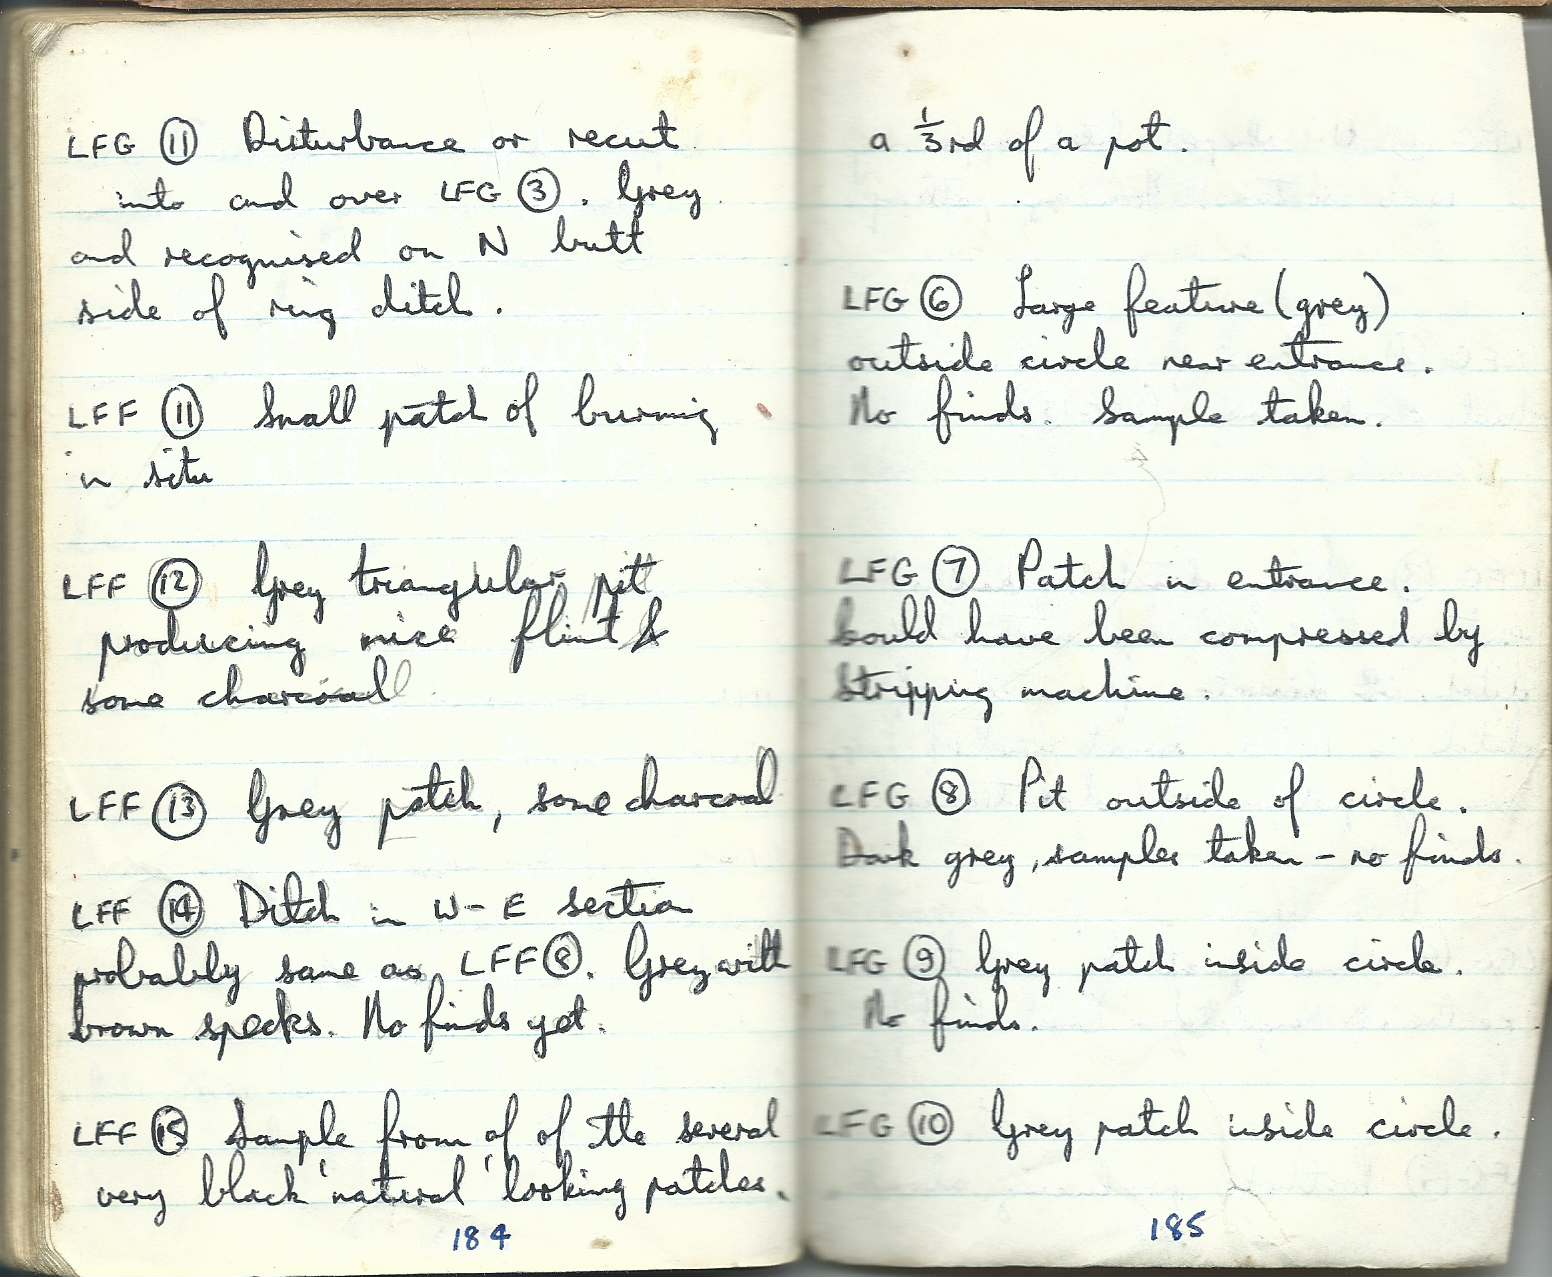 LFG ⑪ Disturbance or recut
into and over LFG ③. Grey
and recognised on N butt
side of ring ditch.
LFF ⑪ Small patch of burning
in situ
LFF ⑫ Grey triangular pit
producing nice flint &
some charcoal
LFF ⑬ Grey patch, some charcoal
LFF ⑭ Ditch in W-E section
probably same as LFF ⑧. Grey with
brown specks. No finds yet.
LFF ⑮ Sample from of of the several
very black 'natural' looking patches.
184
a 1/3rd of a pot.
LFG ⑥ Large feature (grey)
outside circle near entrance.
No finds. Sample taken.
LFG ⑦ Patch in entrance.
Could have been compressed by
stripping machine.
LFG ⑧ Pit outside of circle.
Dark grey, samples taken - no finds.
LFG ⑨ Grey patch inside circle.
No finds.
LFG ⑩ Grey patch inside circle.
185